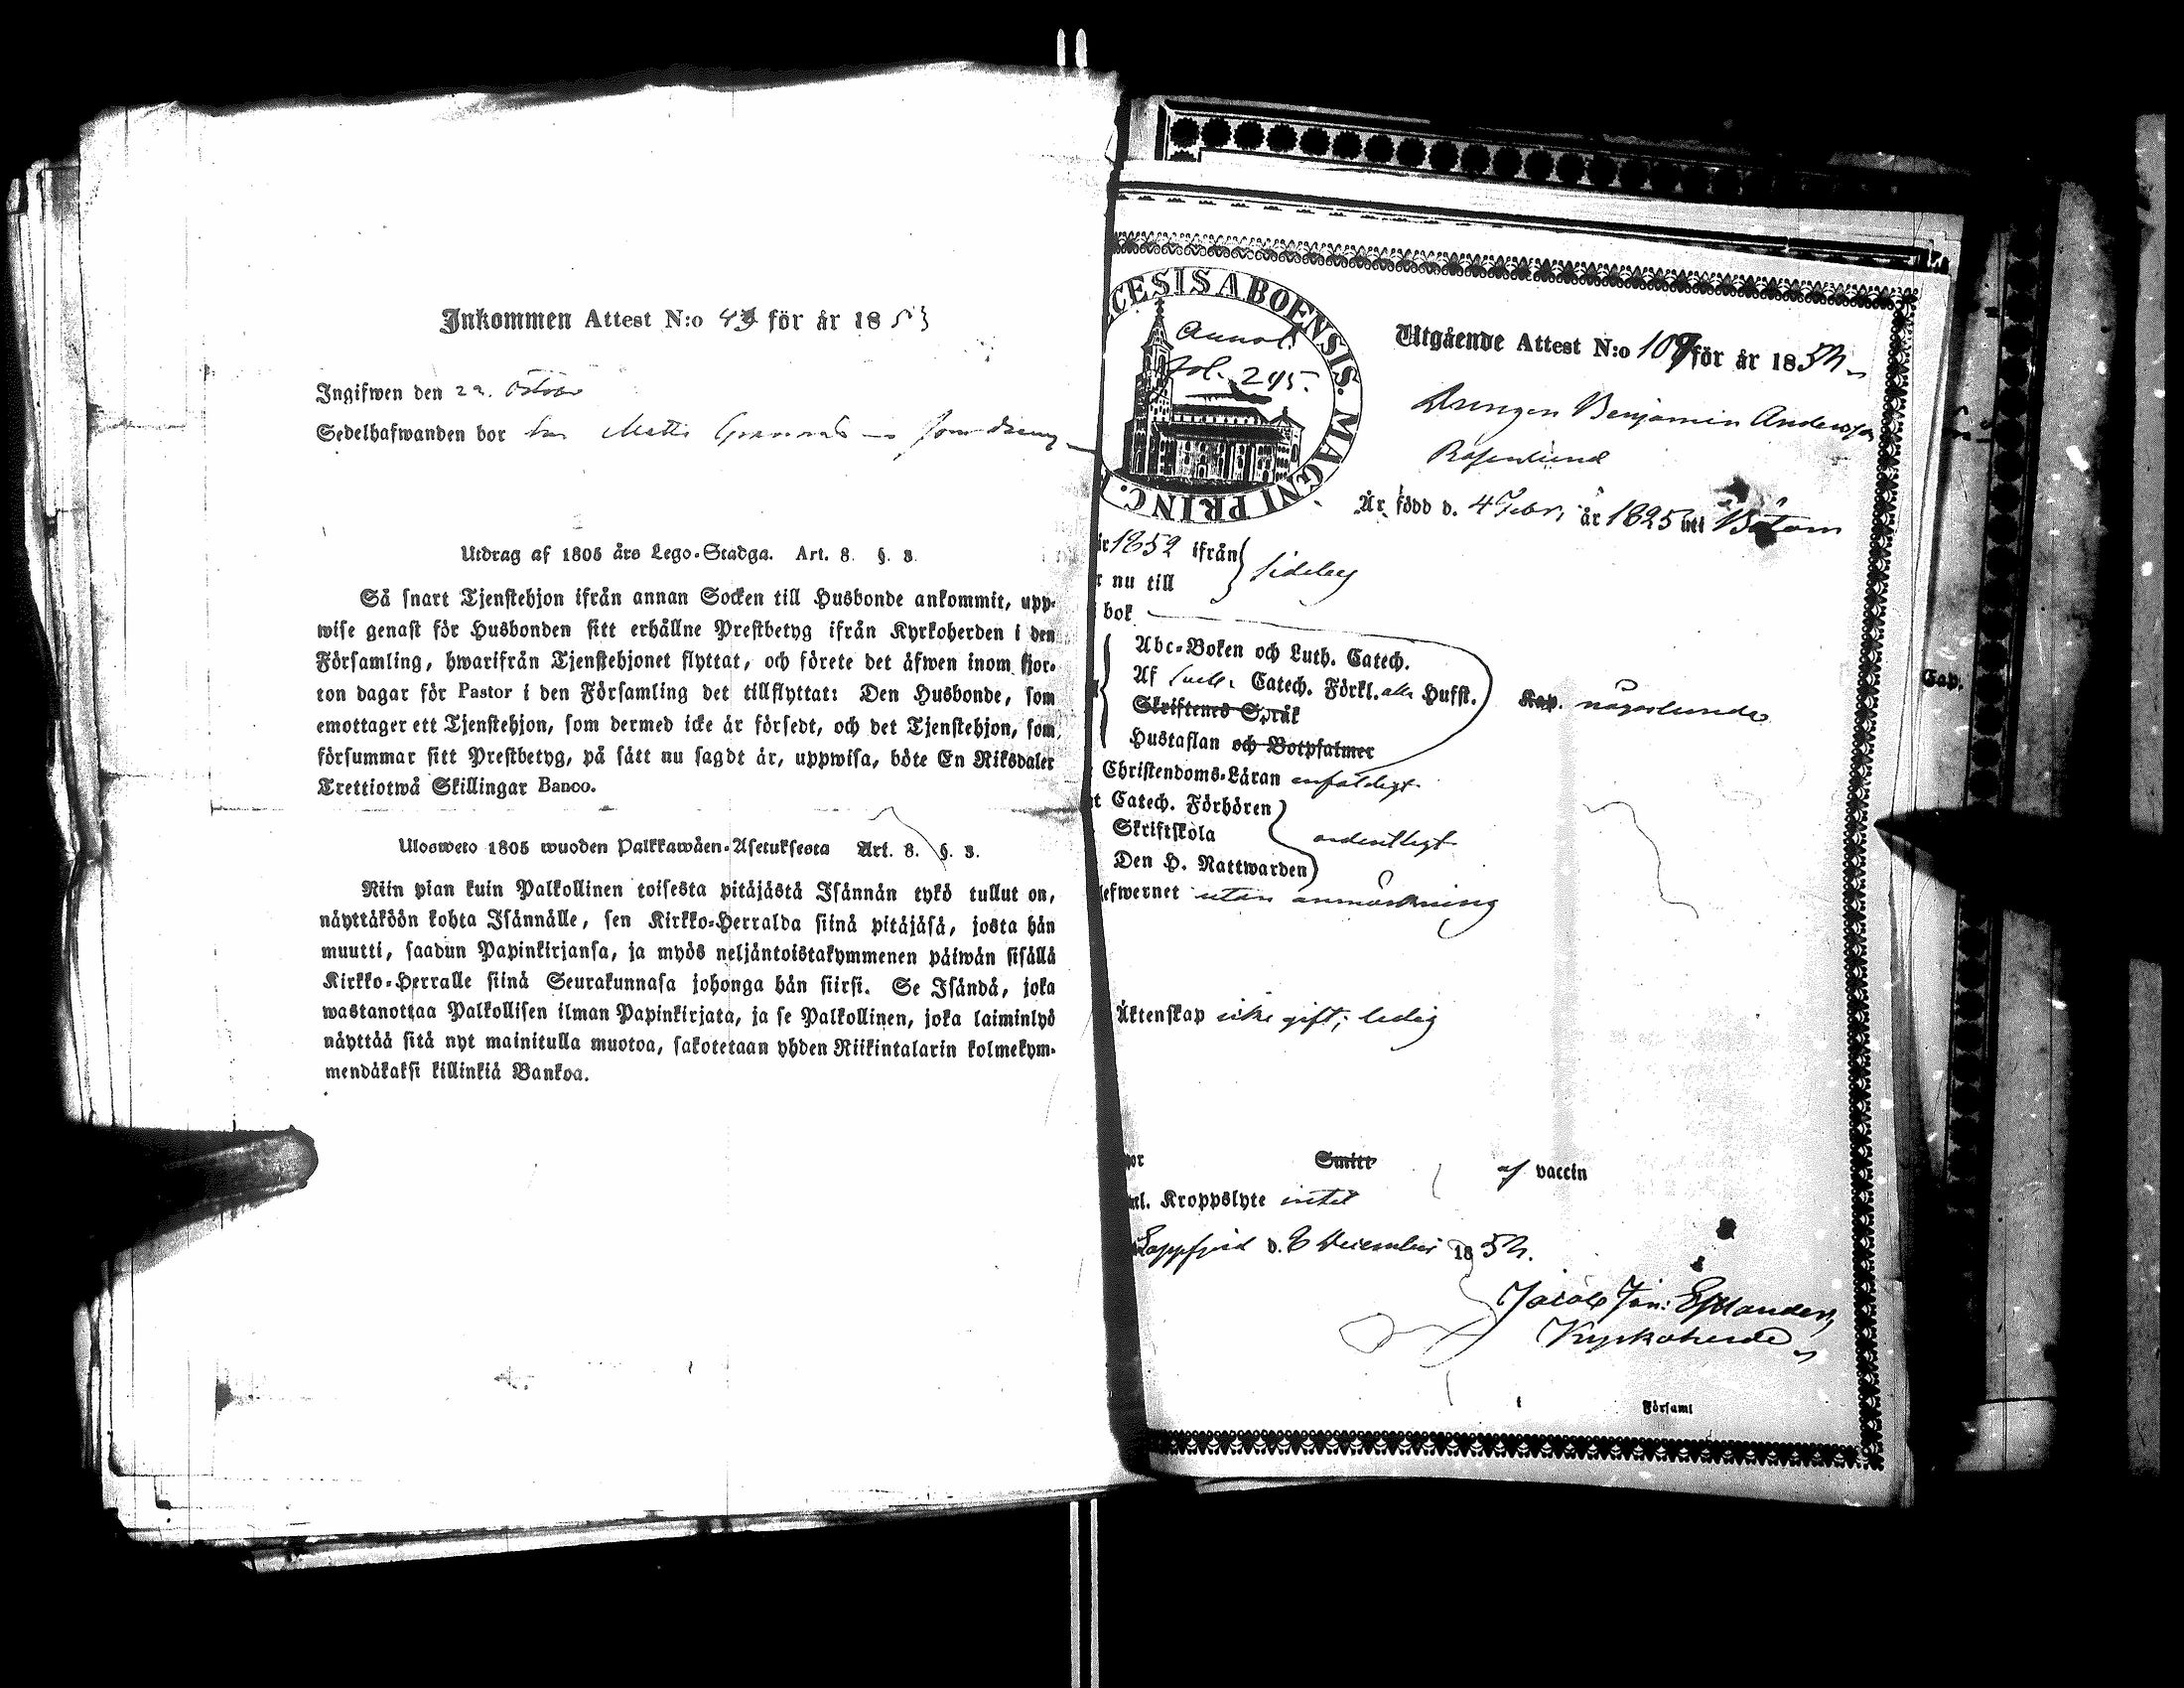 Inkommen Attest N:o 43 för år 1853
Ingifwen den 22. October
Sedelhafwanden bor hos Matts som dreng
Utdrag af 1805 års Lego-Stadga. Art. 8. §. 3.
Så snart Tjenstehjon ifrån annan Socken till Husbonde ankommit, upp-
wise genast för Husbonden sitt erhållne Prestbetyg ifrån Kyrkoherden i den
Församling, hwarifrån Tjenstehjonet flyttat, och förete det äfwen inom fjor-
ton dagar för Pastor i den Församling det tillflyttat: Den Husbonde, som
emottager ett Tjenstehjon, som dermed icke är försedt, och det Tjenstehjon, som
försummar sitt Prestbetyg, på sätt nu sagdt är, uppwisa, böte En Riksdaler
Trettiotwå Skillingar Banco.
Ulosweto 1805 wuoden Palkkawäen-Asetuksesta Art. 8. §. 3.
Niin pian kuin Palkollinen toisesta pitäjästä Isännän tykö tullut on,
näyttäköön kohta Isännälle, sen Kirkko-Herralda siinä pitäjäsä, josta hän
muutti, saadun Papinkirjansa, ja myös neljäntoistakymmenen päiwän sisällä
Kirkko-Herralle siinä Seurakunnasa johonga hän siirsi. Se Isändä, joka
wastanottaa Palkollisen ilman Papinkirjata, ja se Palkollinen, joka laiminlyö
näyttää sitä nyt mainitulla muotoa, sakotetaan yhden Riikintalarin kolmekym-
mendäkaksi killinkiä Bankoa.
CESIS ABOENSIS. MAGNI PRINC.
Annot.
fol. 295.
Utgående Attest N:o 109 för år 1854
Drengen Benjamin Andersson
Rosenlund
Är född d. 4 Febr. år 1825 uti Bötom
år 1852 ifrån
r nu till
Sideby
bok
Abc-Boken och Luth. Catech.
Af Luth. Catech. Förkl. alla Hufst.
Skriftenes Språk
Hustaflan och Botpsalmer
Kap. någorlunda
Christendoms-Läran enfäldigt
t Catech. Förhören
Skriftskola
Den H. Nattwarden
ordentligt
lefwernet utan anmärkning
Äktenskap icke gift; ledig
por Smitt af vaccin
ml. Kroppslyte intet
Lappfjerd d. 6 December 1854.
Jacob Joh: Estlander
Kyrkoherde
i Församl
Cap.